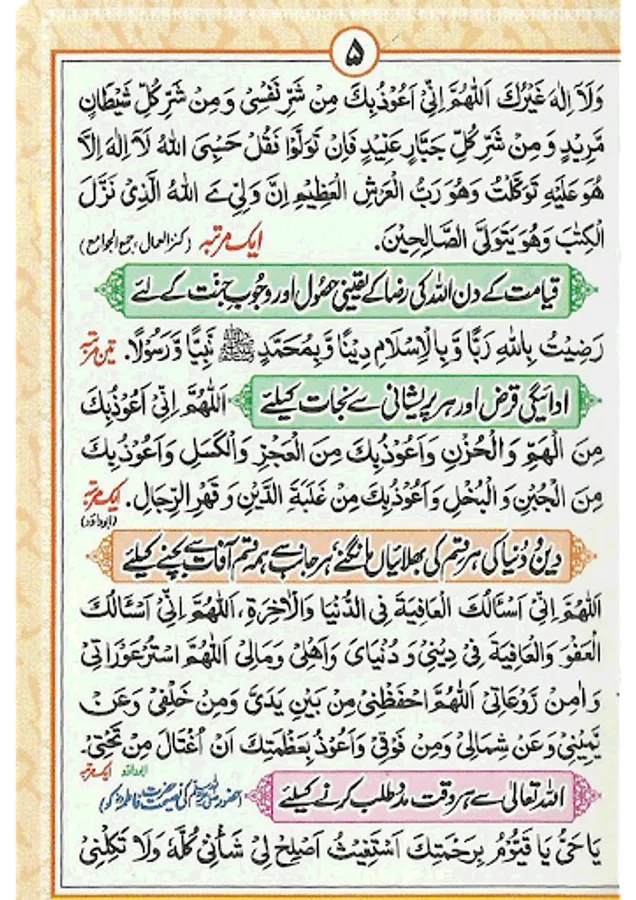 ۵
وَلَا اِلٰهَ غَيْرُكَ اَللّٰهُمَّ اِنِّيْ اَعُوْذُبِكَ مِنْ شَرِّ نَفْسِيْ وَمِنْ شَرِّ كُلِّ شَيْطَانٍ
مَّرِيْدٍ وَّ مِنْ شَرِّ كُلِّ جَبَّارٍ عَنِيْدٍ فَاِنْ تَوَلَّوْا فَقُلْ حَسْبِيَ اللهُ لَآ اِلٰهَ اِلَّا
هُوَ عَلَيْهِ تَوَكَّلْتُ وَهُوَ رَبُّ الْعَرْشِ الْعَظِيْمِ اِنَّ وَلِيِّ ےَ اللهُ الَّذِيْ نَزَّلَ
الْكِتٰبَ وَهُوَ يَتَوَلَّى الصَّالِحِيْنَ. ایک مرتبہ (کنزالعمال، جمع الجوامع)
قیامت کے دن اللہ کی رضا کے یقینی حصول اور وجوب جنت کے لئے
رَضِيْتُ بِاللهِ رَبًّا وَّ بِالْاِسْلَامِ دِيْنًا وَّ بِمُحَمَّدٍ ﷺ نَبِيًّا وَّ رَسُوْلًا. تین مرتبہ
ادائیگی قرض اور ہر پریشانی سے نجات کیلئے اَللّٰهُمَّ اِنِّيْ اَعُوْذُبِكَ
مِنَ الْهَمِّ وَالْحُزْنِ وَاَعُوْذُبِكَ مِنَ الْعَجْزِ وَالْكَسَلِ وَاَعُوْذُبِكَ
مِنَ الْجُبْنِ وَالْبُخْلِ وَاَعُوْذُبِكَ مِنْ غَلَبَةِ الدَّيْنِ وَ قَهْرِ الرِّجَالِ. ایک مرتبہ
(ابوداؤد)
دین و دنیا کی ہر قسم کی بھلائیاں مانگنے ہر جانب سے ہمہ قسم آفات سے بچنے کیلئے
اَللّٰهُمَّ اِنِّيْ اَسْئَالُكَ الْعَافِيَةَ فِي الدُّنْيَا وَالْاٰخِرَةِ، اَللّٰهُمَّ اِنِّيْ اَسْئَالُكَ
الْعَفْوَ وَالْعَافِيَةَ فِيْ دِيْنِيْ وَ دُنْيَايَ وَاَهْلِيْ وَمَالِيْ اَللّٰهُمَّ اسْتُرْ عَوْرَاتِيْ
وَاٰمِنْ رَوْعَاتِيْ اَللّٰهُمَّ احْفَظْنِيْ مِنْ بَيْنِ يَدَيَّ وَمِنْ خَلْفِيْ وَعَنْ
يَّمِيْنِيْ وَعَنْ شِمَالِيْ وَمِنْ فَوْقِيْ وَاَعُوْذُ بِعَظَمَتِكَ اَنْ اُغْتَالَ مِنْ تَحْتِيْ.
ابوداؤد ایک مرتبہ
اللہ تعالیٰ سے ہر وقت مدد طلب کرنے کیلئے (حضور صلی اللہ علیہ وسلم کی نصیحت حضرت فاطمہؓ کو)
يَا حَيُّ يَا قَيُّوْمُ بِرَحْمَتِكَ اَسْتَغِيْثُ اَصْلِحْ لِيْ شَأْنِيْ كُلَّهٗ وَلَا تَكِلْنِيْ